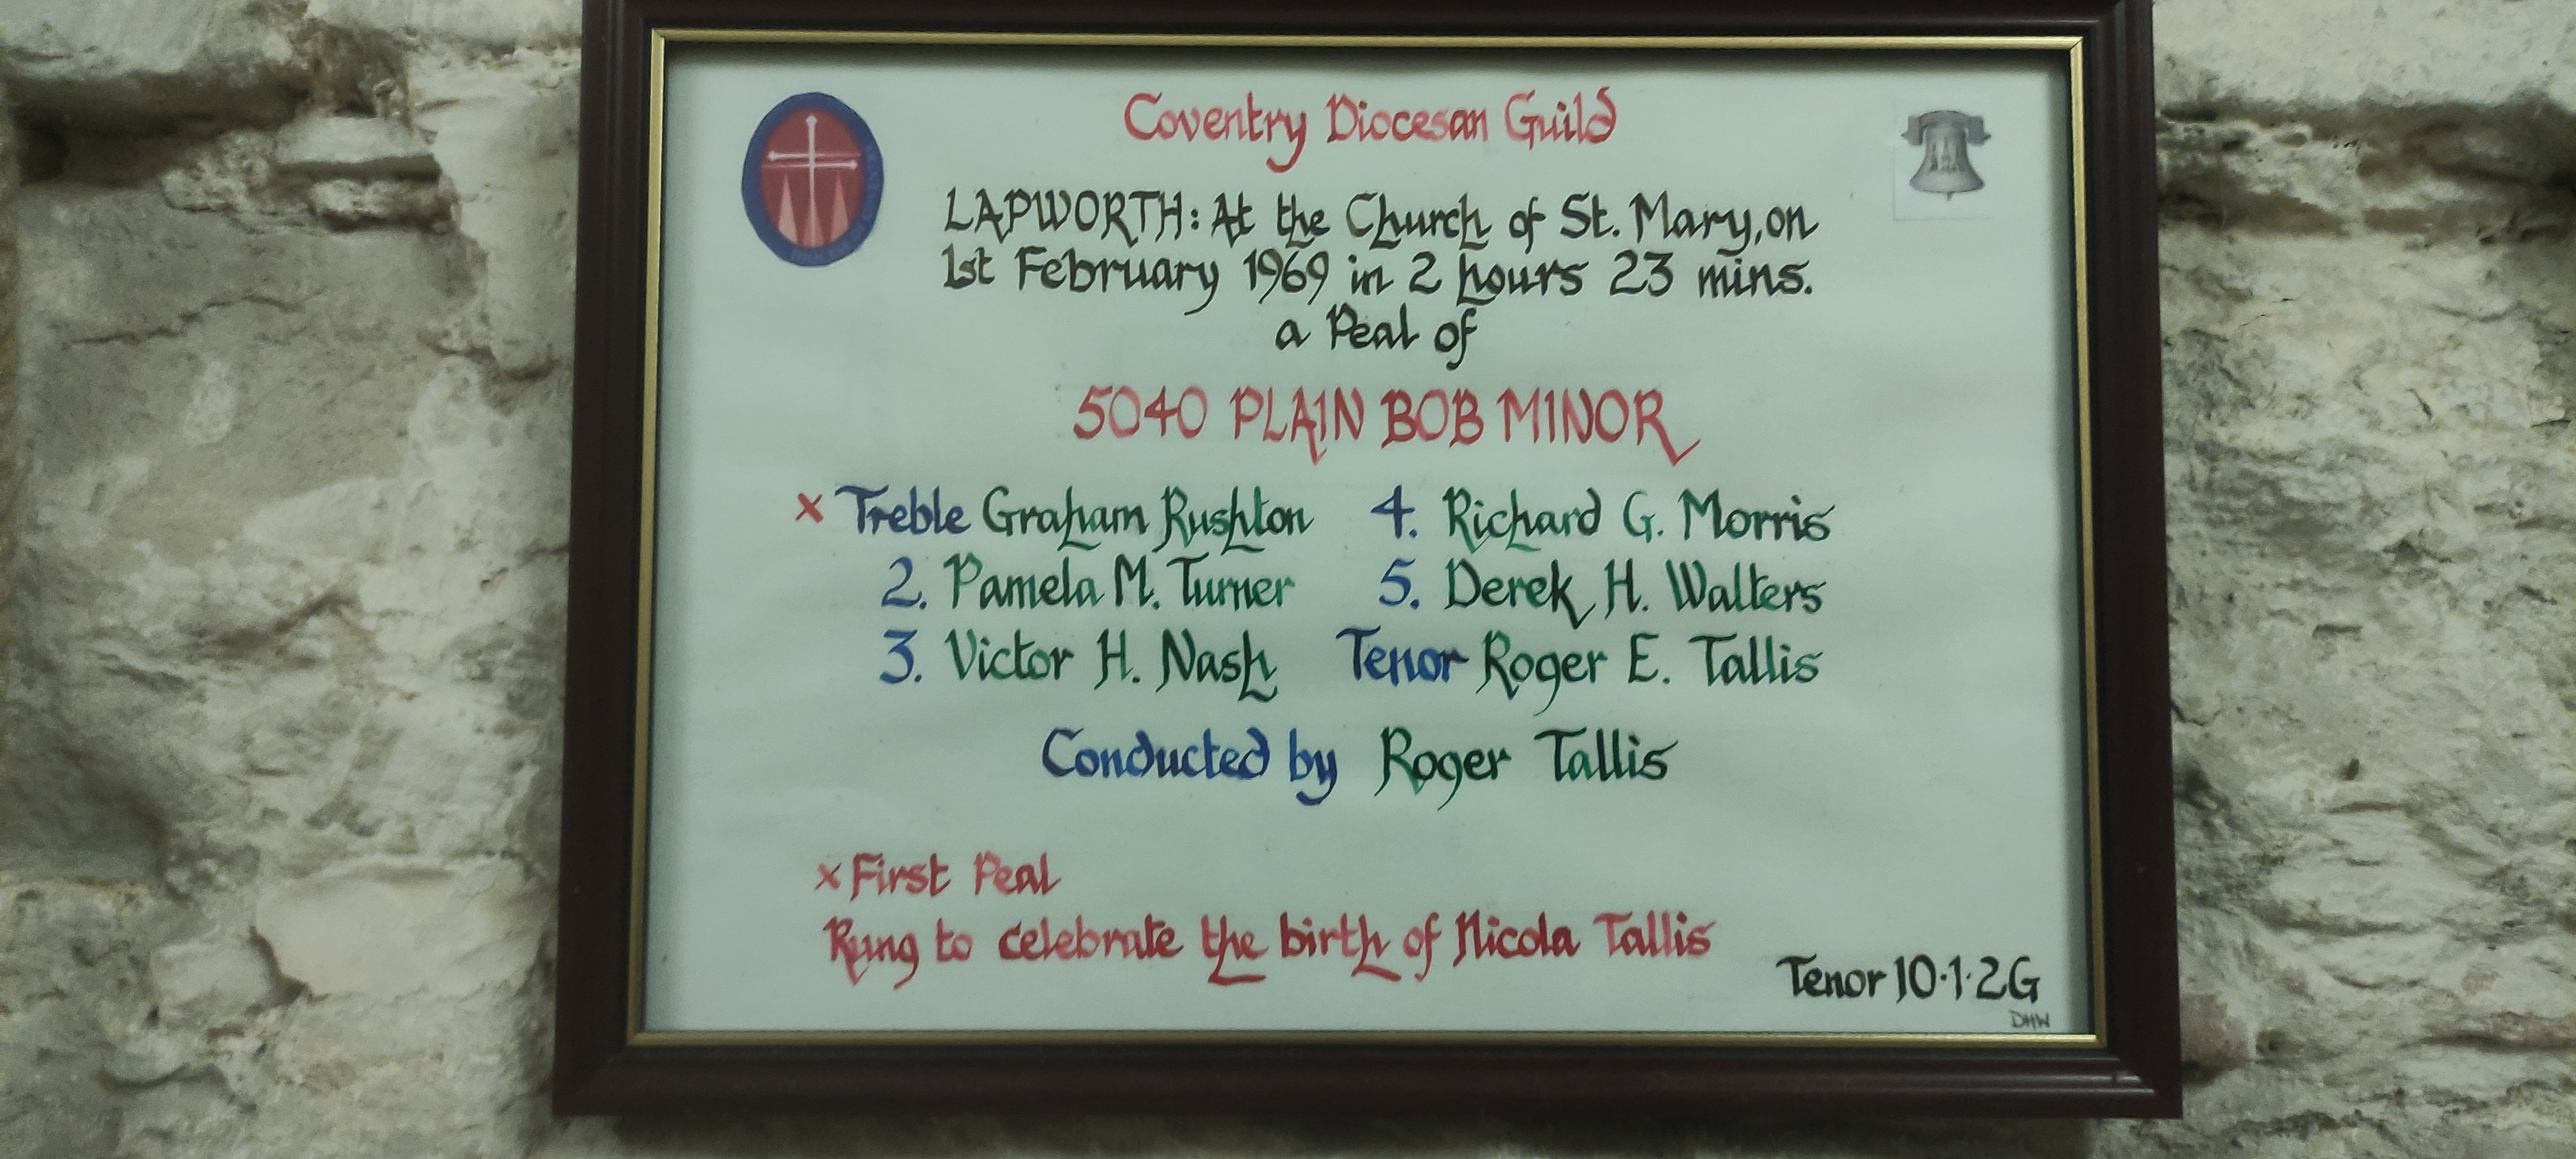 Coventry Diocesan Guild
LAPWORTH: At the Church of St. Mary, on
1st February 1969 in 2 hours 23 mins.
a Peal of
5040 PLAIN BOB MINOR
x Treble Graham Rushton 4. Richard G. Morris
2. Pamela M. Turner 5. Derek H. Walters
3. Victor H. Nash Tenor Roger E. Tallis
Conducted by Roger Tallis
x First Peal
Rung to celebrate the birth of Nicola Tallis
Tenor 10·1·2G
DHW